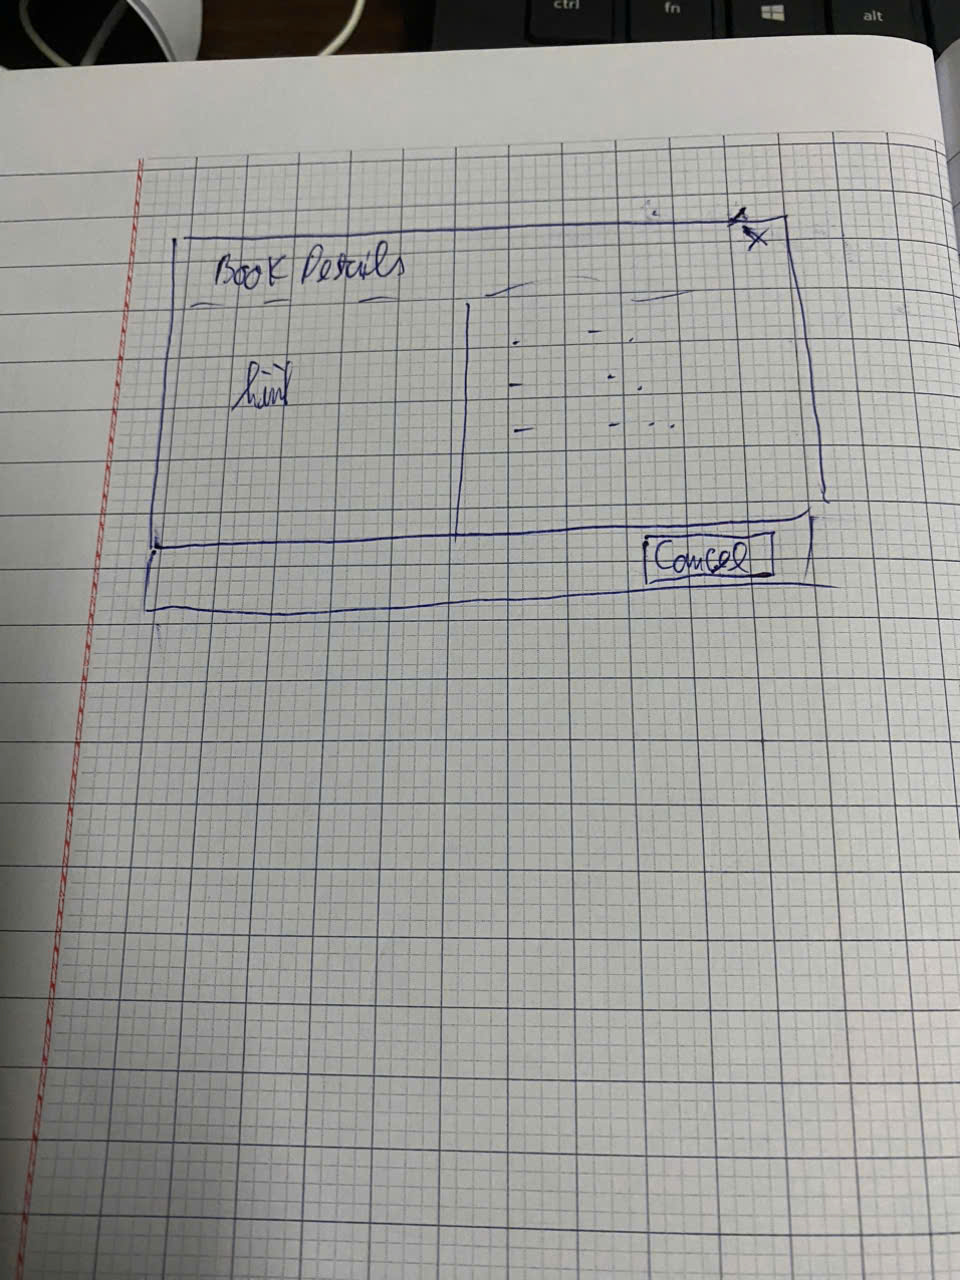 ctrl fn alt
Book Details
X
hình
Cancel